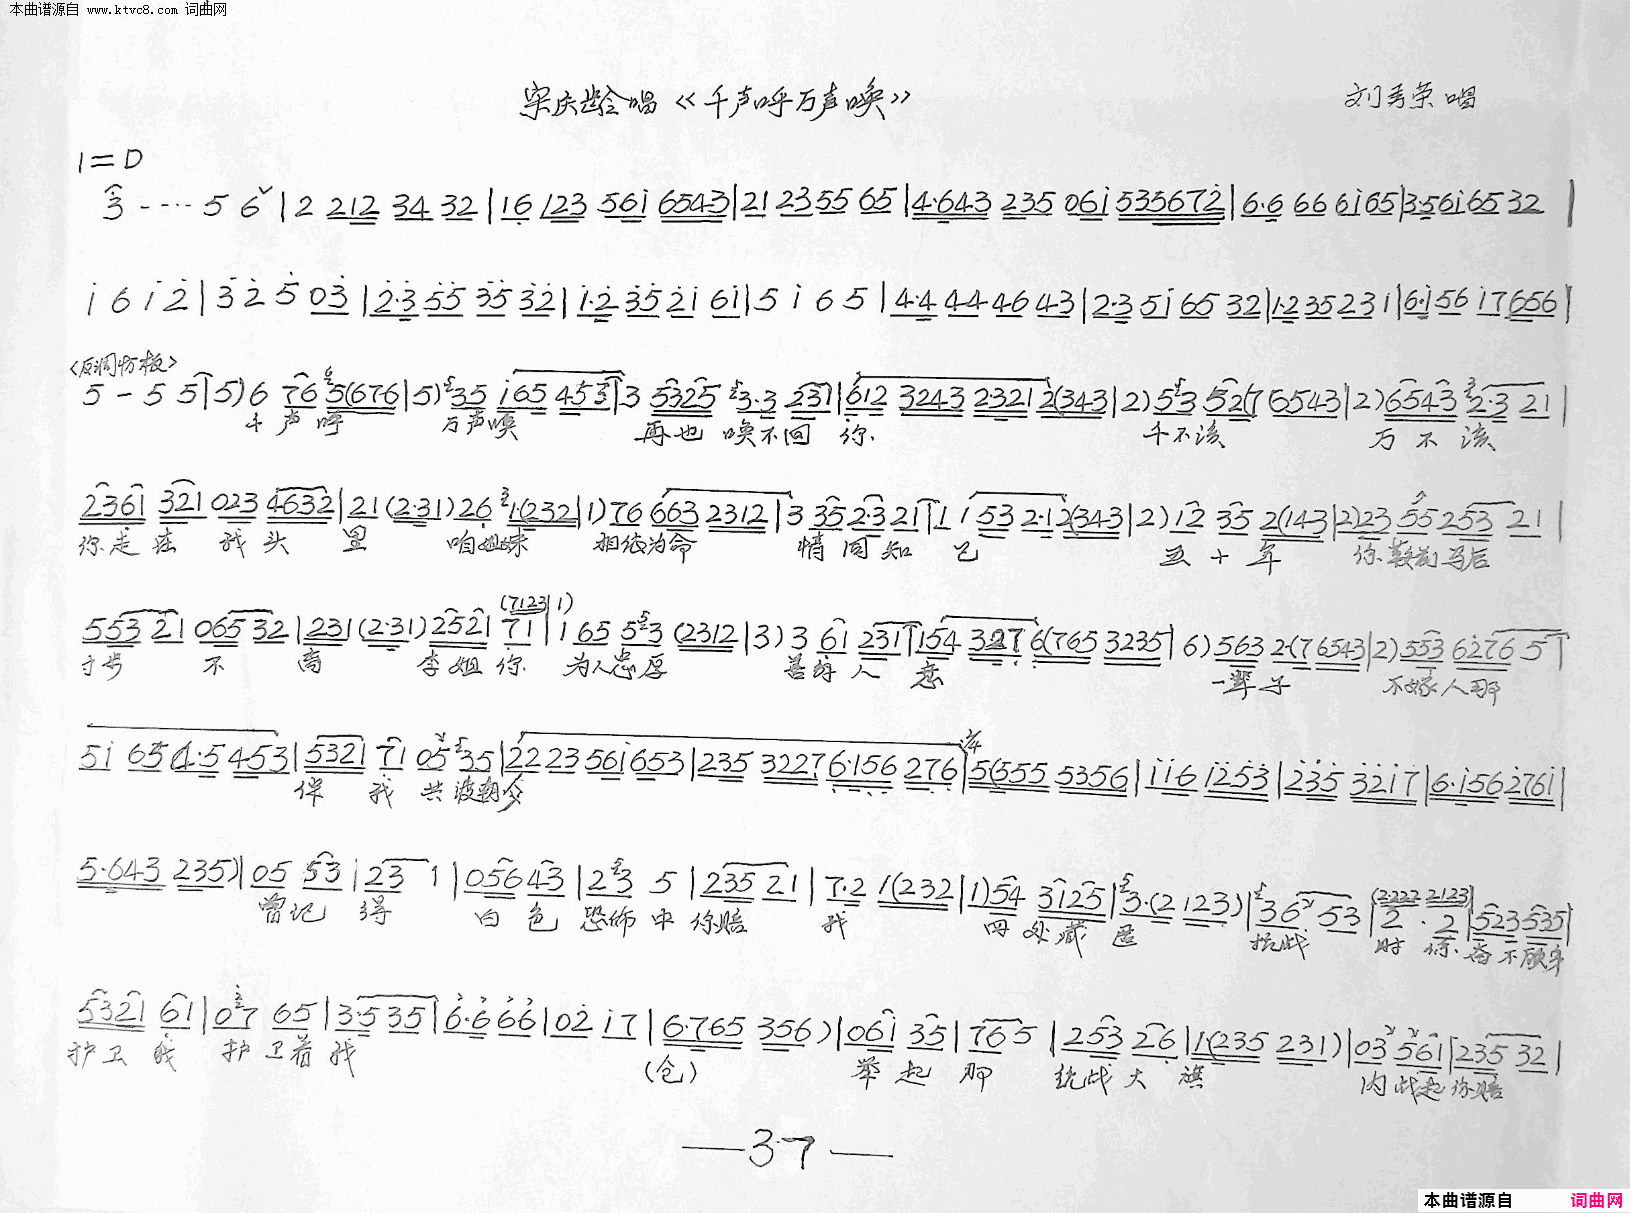 本曲谱源自 www.ktvc8.com 词曲网
宋庆龄唱《千声呼万声唤》 刘秀荣唱
1=D
3 - ···· 5 6 | 2 212 34 32 | 16 123 561 6543 | 21 2355 65 | 4·643 235 061 535672 | 6·6 66 6165 | 3·561 65 32 |
1 6 1 2 | 3 2 5 03 | 2·3 55 35 32 | 1·2 35 21 61 | 5 1 6 5 | 4·4 44 46 43 | 2·3 51 65 32 | 1·2 35 23 1 | 6·156 17656 |
5 - 5 5 | 5) 6 76 5(676 | 5) 35 165 453 | 3 5325 3·3 231 | 612 3243 2321 2(343 | 2) 53 52(7 6543 | 2) 6543 2·3 21 |
千 声 呼 万声唤 再也 唤不回 你 千不该 万 不 该
2361 321 023 4632 | 21 (2·31) 26 1(232 | 1) 76 663 2312 | 3 35 2·3 21 | 1 1 53 2·12(343 | 2) 12 35 2(143 | 2) 23 55 253 21 |
你走在 我 头 里 咱姐妹 相依为命 情同知己 五十年 你鞍前马后
(7123 | 1)
553 21 065 32 | 231 (2·31) 2521 71 | 1 65 53 (2312 | 3) 3 61 231 | 154 327 6(765 3235 | 6) 563 2·(7 6543 | 2) 553 6276 5 |
寸步 不 离 李姐你 为人忠厚 善解人意 一辈子 不嫁人那
51 654·5 453 | 5321 71 05 35 | 22 23 561653 | 235 3227 6·156 276 | 5(555 5356 | 116 1253 | 235 3217 | 6·156 2761 |
伴 我 共渡朝夕
5·643 235) | 05 53 | 23 1 | 05643 | 23 5 | 235 21 | 7·2 1(232 | 1) 54 3125 | 3·(2 123) | 36 53 | 2 · 2 | 523 535 |
(2222 2123)
曾记 得 白 色 恐怖 中 你陪 我 四处藏匿 抗战 时 你奋不顾身
5321 61 | 07 65 | 3·535 | 6·666 | 02 17 | 6·765 356) | 061 35 | 765 | 253 26 | 1(235 231) | 03 561 | 235 32 |
护卫 我 护卫着我 (仓) 举起 那 统战大旗 内战起你陪
—37—
本曲谱源自 词曲网